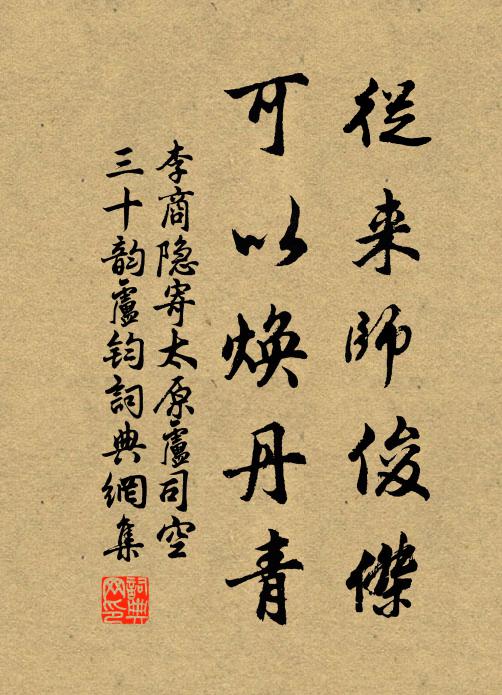 從来師俊傑
可以煥丹青
李商隐寄太原盧司空
三十韵盧钧詞典網集
詞典网印